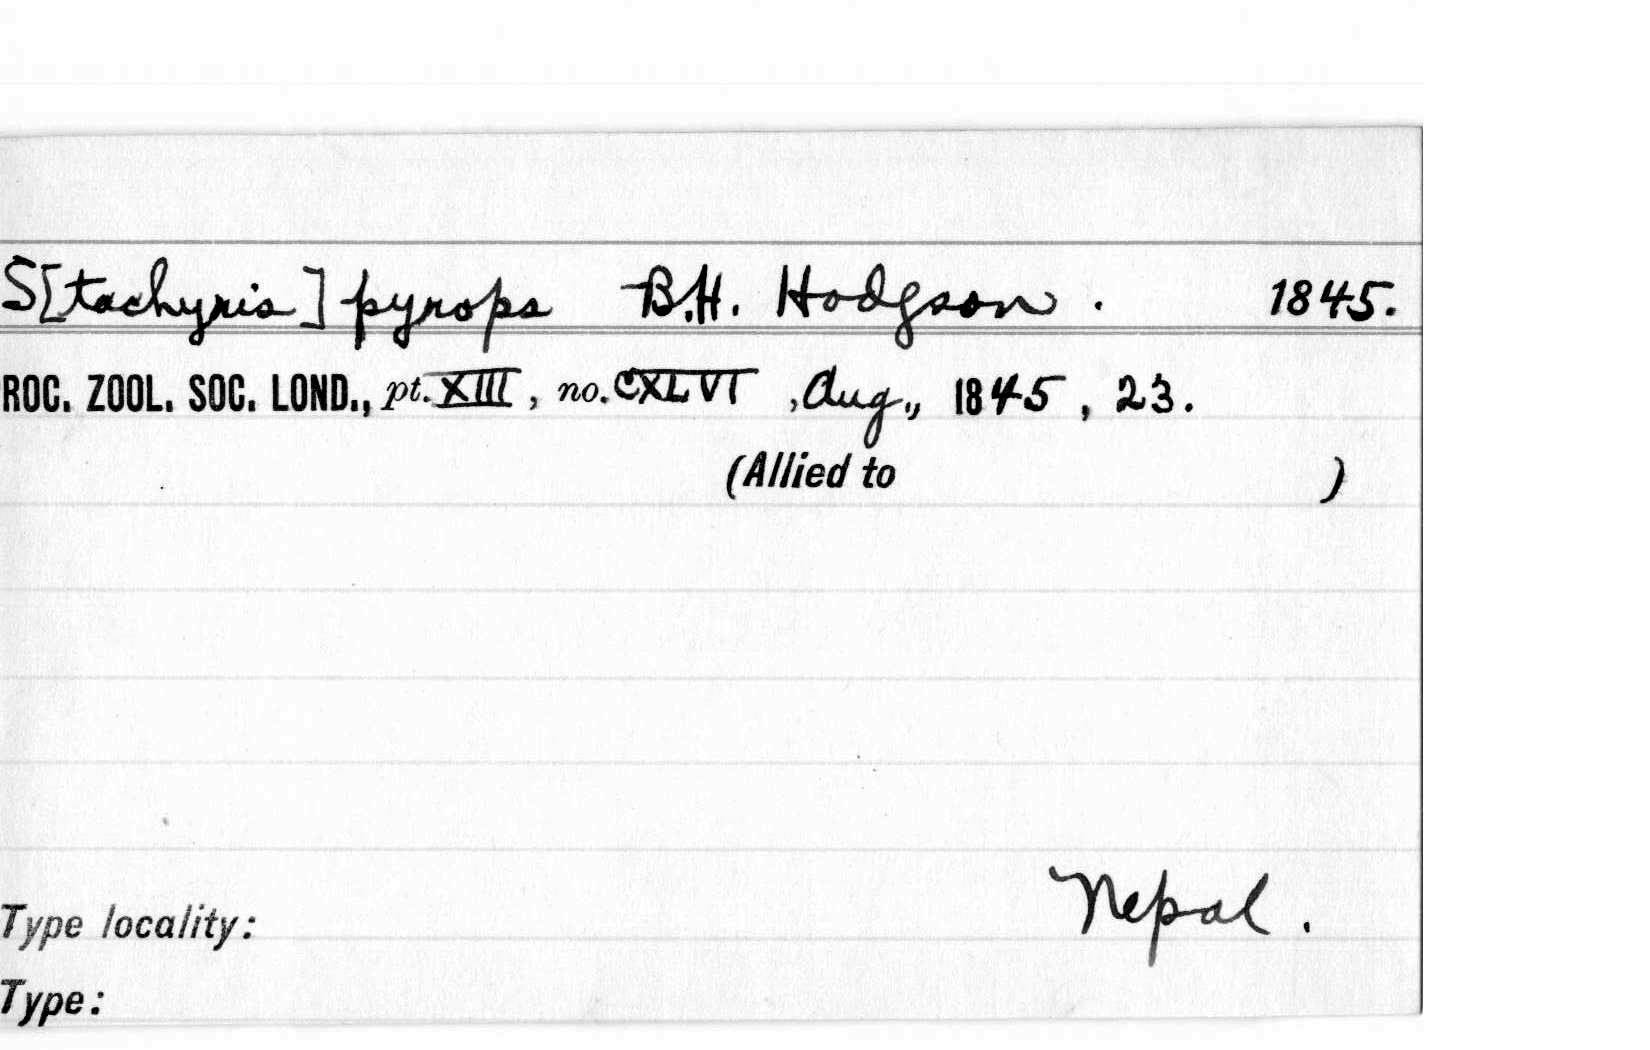 S[tachyris] pyrops B.H. Hodgson. 1845.
ROC. ZOOL. SOC. LOND., pt. XIII, no. CXLVI, Aug., 1845, 23.
(Allied to )
Nepal.
Type locality:
Type: